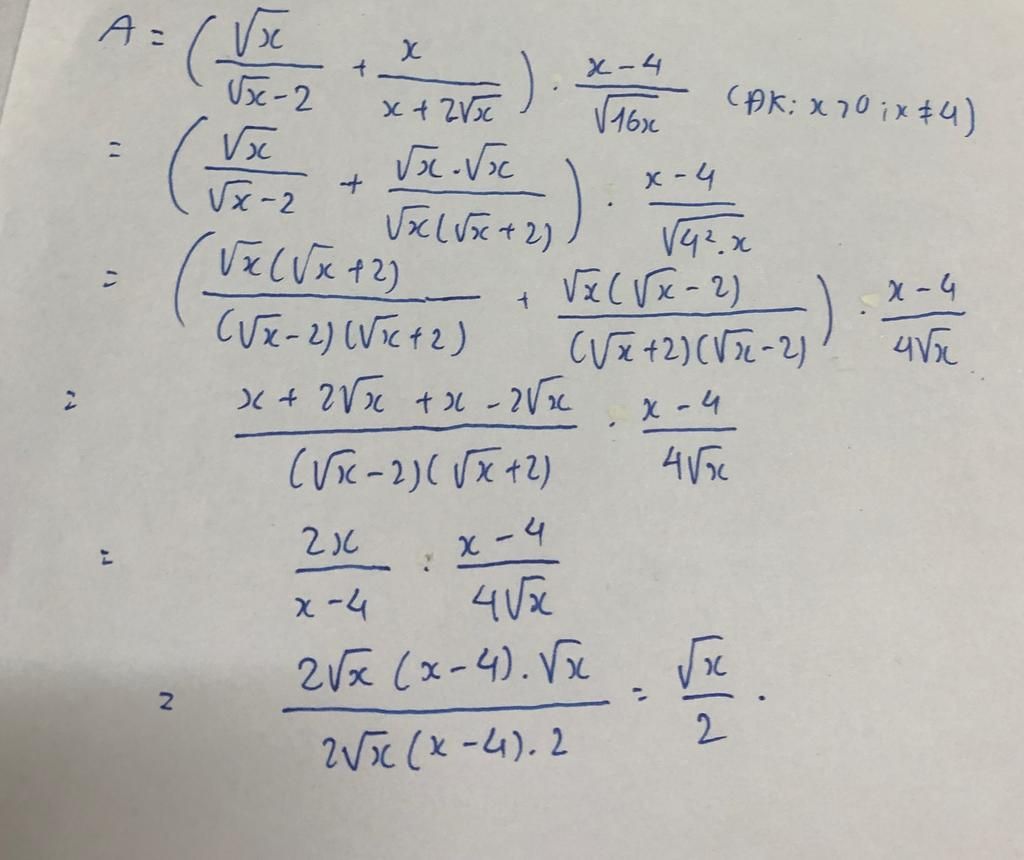 A = (√x/(√x-2) + x/(x+2√x)) · (x-4)/√16x (ĐK: x>0; x≠4)
= (√x/(√x-2) + √x·√x/(√x(√x+2))) · (x-4)/√4².x
= (√x(√x+2)/((√x-2)(√x+2)) + √x(√x-2)/((√x+2)(√x-2))) · (x-4)/4√x
= (x+2√x+x-2√x)/((√x-2)(√x+2)) · (x-4)/4√x
= 2x/(x-4) : (x-4)/4√x
= 2√x(x-4).√x/(2√x(x-4).2) = √x/2.